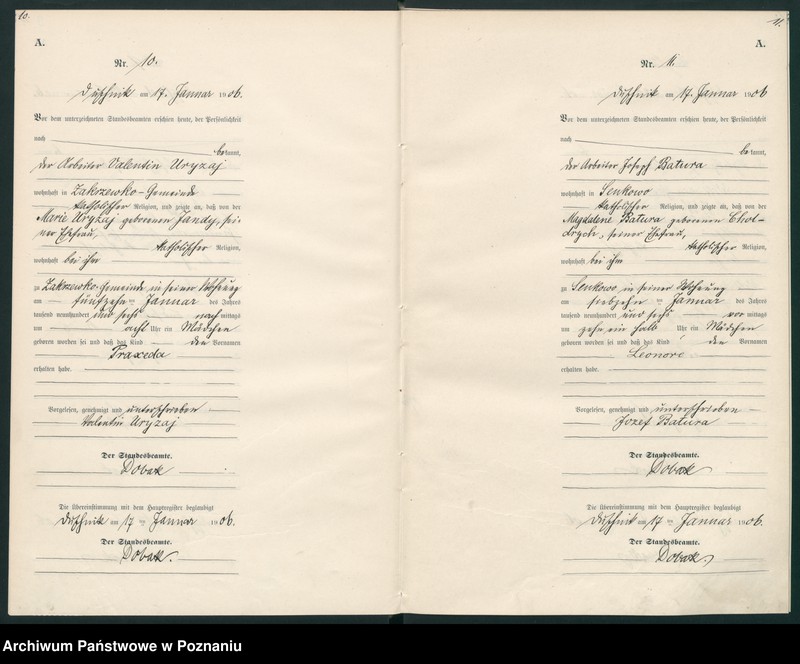 10.
A.
Nr. 10.
Duschnik am 17. Januar 1906.
Vor dem unterzeichneten Standesbeamten erschien heute, der Persönlichkeit
nach
bekannt,
der Arbeiter Valentin Uryzaj
wohnhaft in Zakrzewko-Gemeinde
katholischer Religion, und zeigte an, daß von der
Marie Uryzaj geborenen Jandy, sei-
ner Ehefrau,
katholischer Religion,
wohnhaft bei ihm
zu Zakrzewko-Gemeinde, in seiner Wohnung
am fünfzehn ten Januar des Jahres
tausend neunhundert und sechs nachmittags
um acht Uhr ein Mädchen
geboren worden sei und daß das Kind den Vornamen
Praxeda
erhalten habe.
Vorgelesen, genehmigt und unterschrieben
Valentin Uryzaj
Der Standesbeamte.
Dobak
Die Übereinstimmung mit dem Hauptregister beglaubigt
Duschnik am 17 ten Januar 1906.
Der Standesbeamte.
Dobak.
11.
A.
Nr. 11.
Duschnik am 17. Januar 1906
Vor dem unterzeichneten Standesbeamten erschien heute, der Persönlichkeit
nach
bekannt,
der Arbeiter Joseph Batura
wohnhaft in Senkowo
katholischer Religion, und zeigte an, daß von der
Magdalene Batura geborenen Chol-
drych, seiner Ehefrau,
katholischer Religion,
wohnhaft bei ihm
zu Senkowo in seiner Wohnung
am siebzehn ten Januar des Jahres
tausend neunhundert und sechs vormittags
um zehn ein halb Uhr ein Mädchen
geboren worden sei und daß das Kind den Vornamen
Leonore
erhalten habe.
Vorgelesen, genehmigt und unterschrieben
Jozef Batura
Der Standesbeamte.
Dobak
Die Übereinstimmung mit dem Hauptregister beglaubigt
Duschnik am 17 ten Januar 1906.
Der Standesbeamte.
Dobak.
Archiwum Państwowe w Poznaniu